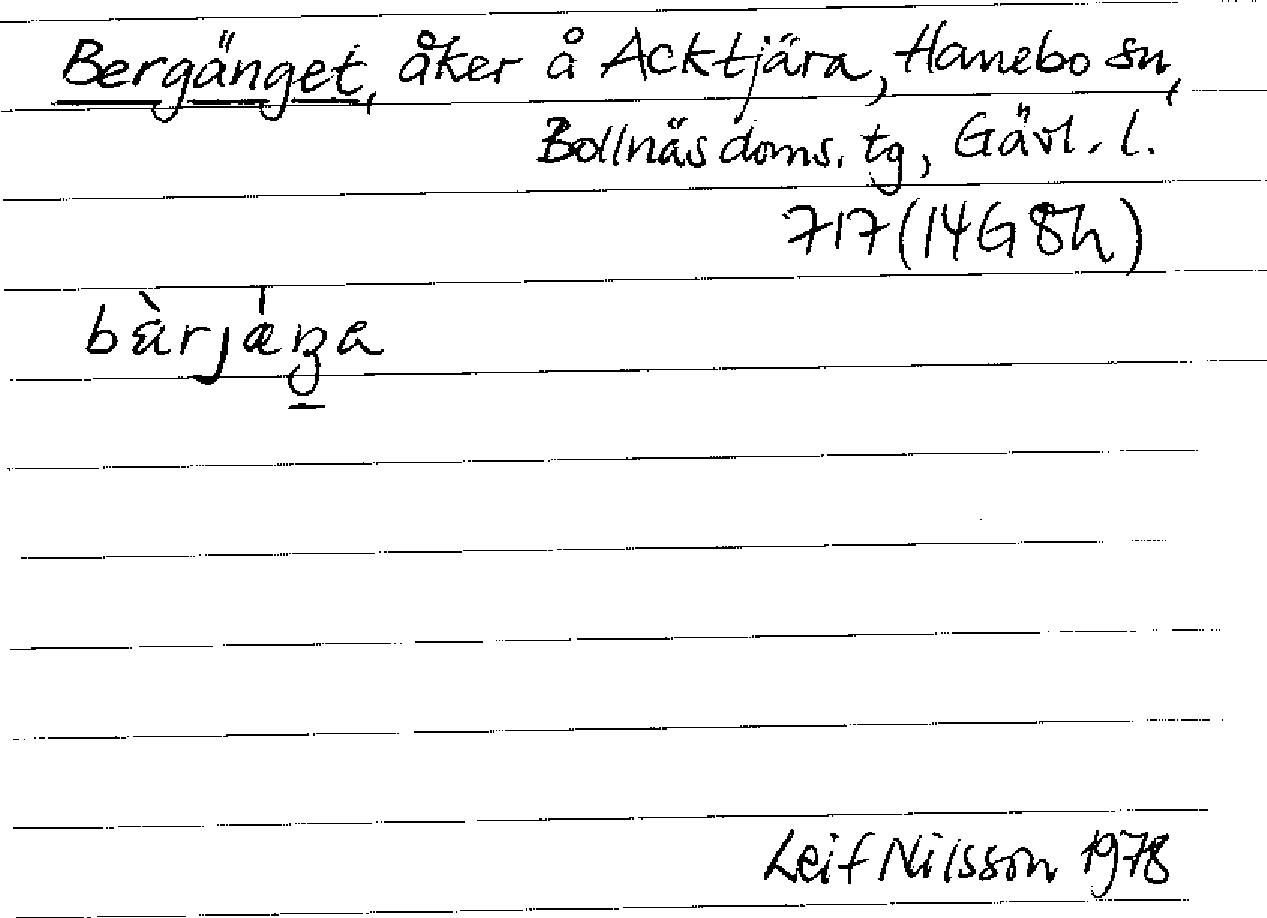 Bergänget, åker å Acktjära, Hanebo sn,
Bollnäs doms. tg, Gävl. l.
717 (14G 8h)
bὰrjǽŋa
Leif Nilsson 1978